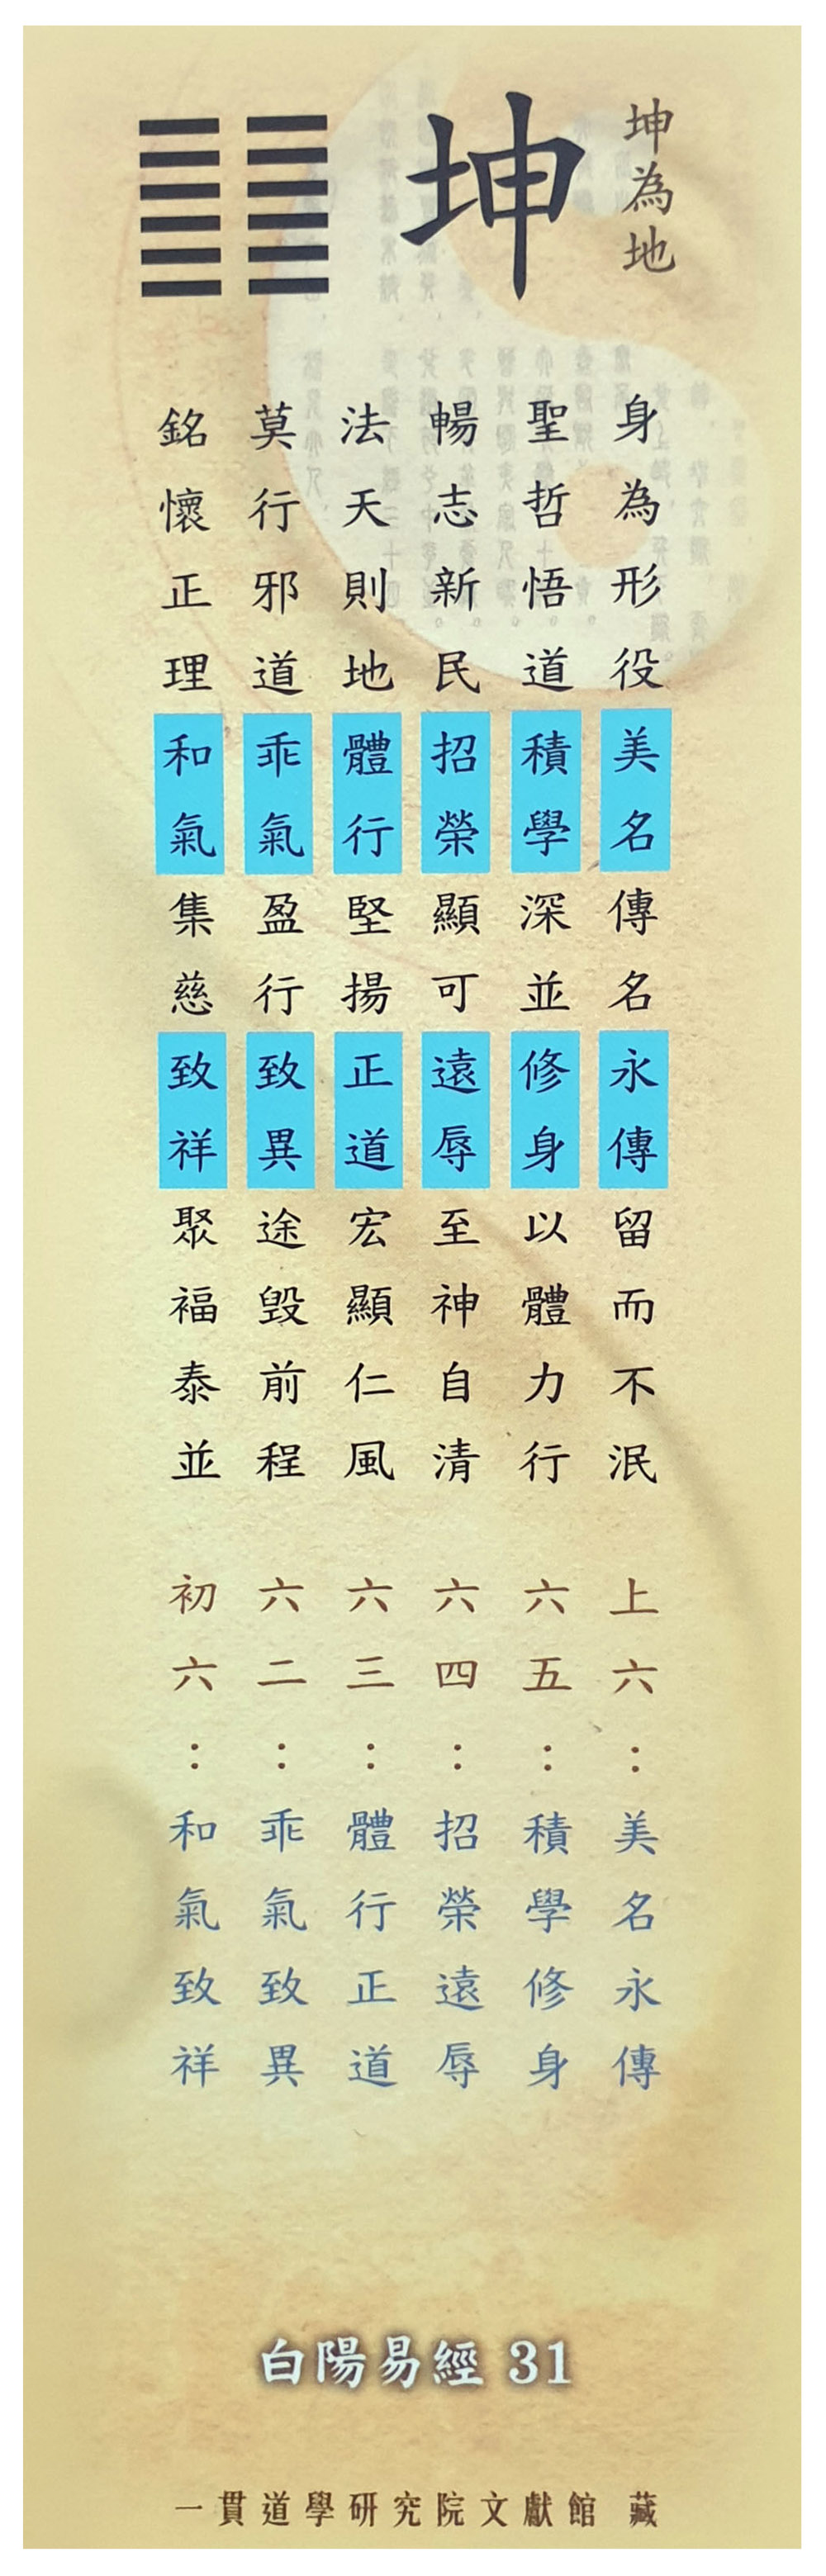 坤為地
坤
身為形役美名傳名永傳留而不泯
聖哲悟道積學深並修身以體力行
暢志新民招榮顯可遠辱至神自清
法天則地體行堅揚正道宏顯仁風
莫行邪道乖氣盈行致異途毀前程
銘懷正理和氣集慈致祥聚福泰並
上六：美名永傳
六五：積學修身
六四：招榮遠辱
六三：體行正道
六二：乖氣致異
初六：和氣致祥
白陽易經 31
一貫道學研究院文獻館 藏